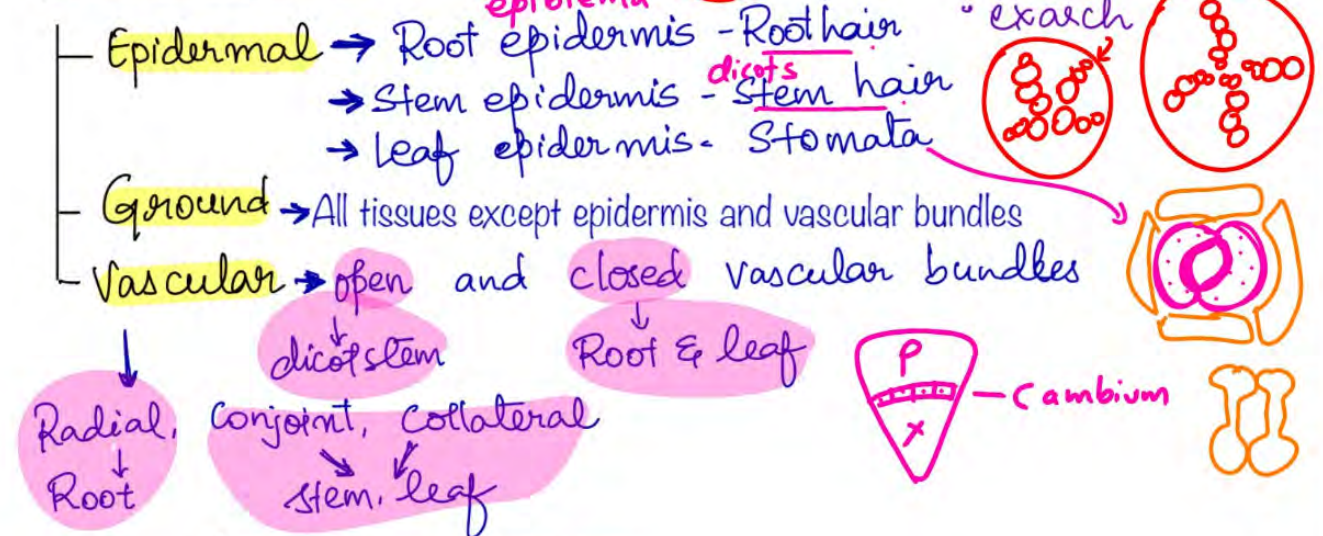 epiblema
exarch
Epidermal → Root epidermis - Root hair
dicots
→ Stem epidermis - Stem hair
→ Leaf epidermis - Stomata
Ground → All tissues except epidermis and vascular bundles
Vascular → open and closed vascular bundles
↓ dicot stem
↓ Root & leaf
P
Cambium
X
Radial, Conjoint, Collateral
↓ Root
stem, leaf